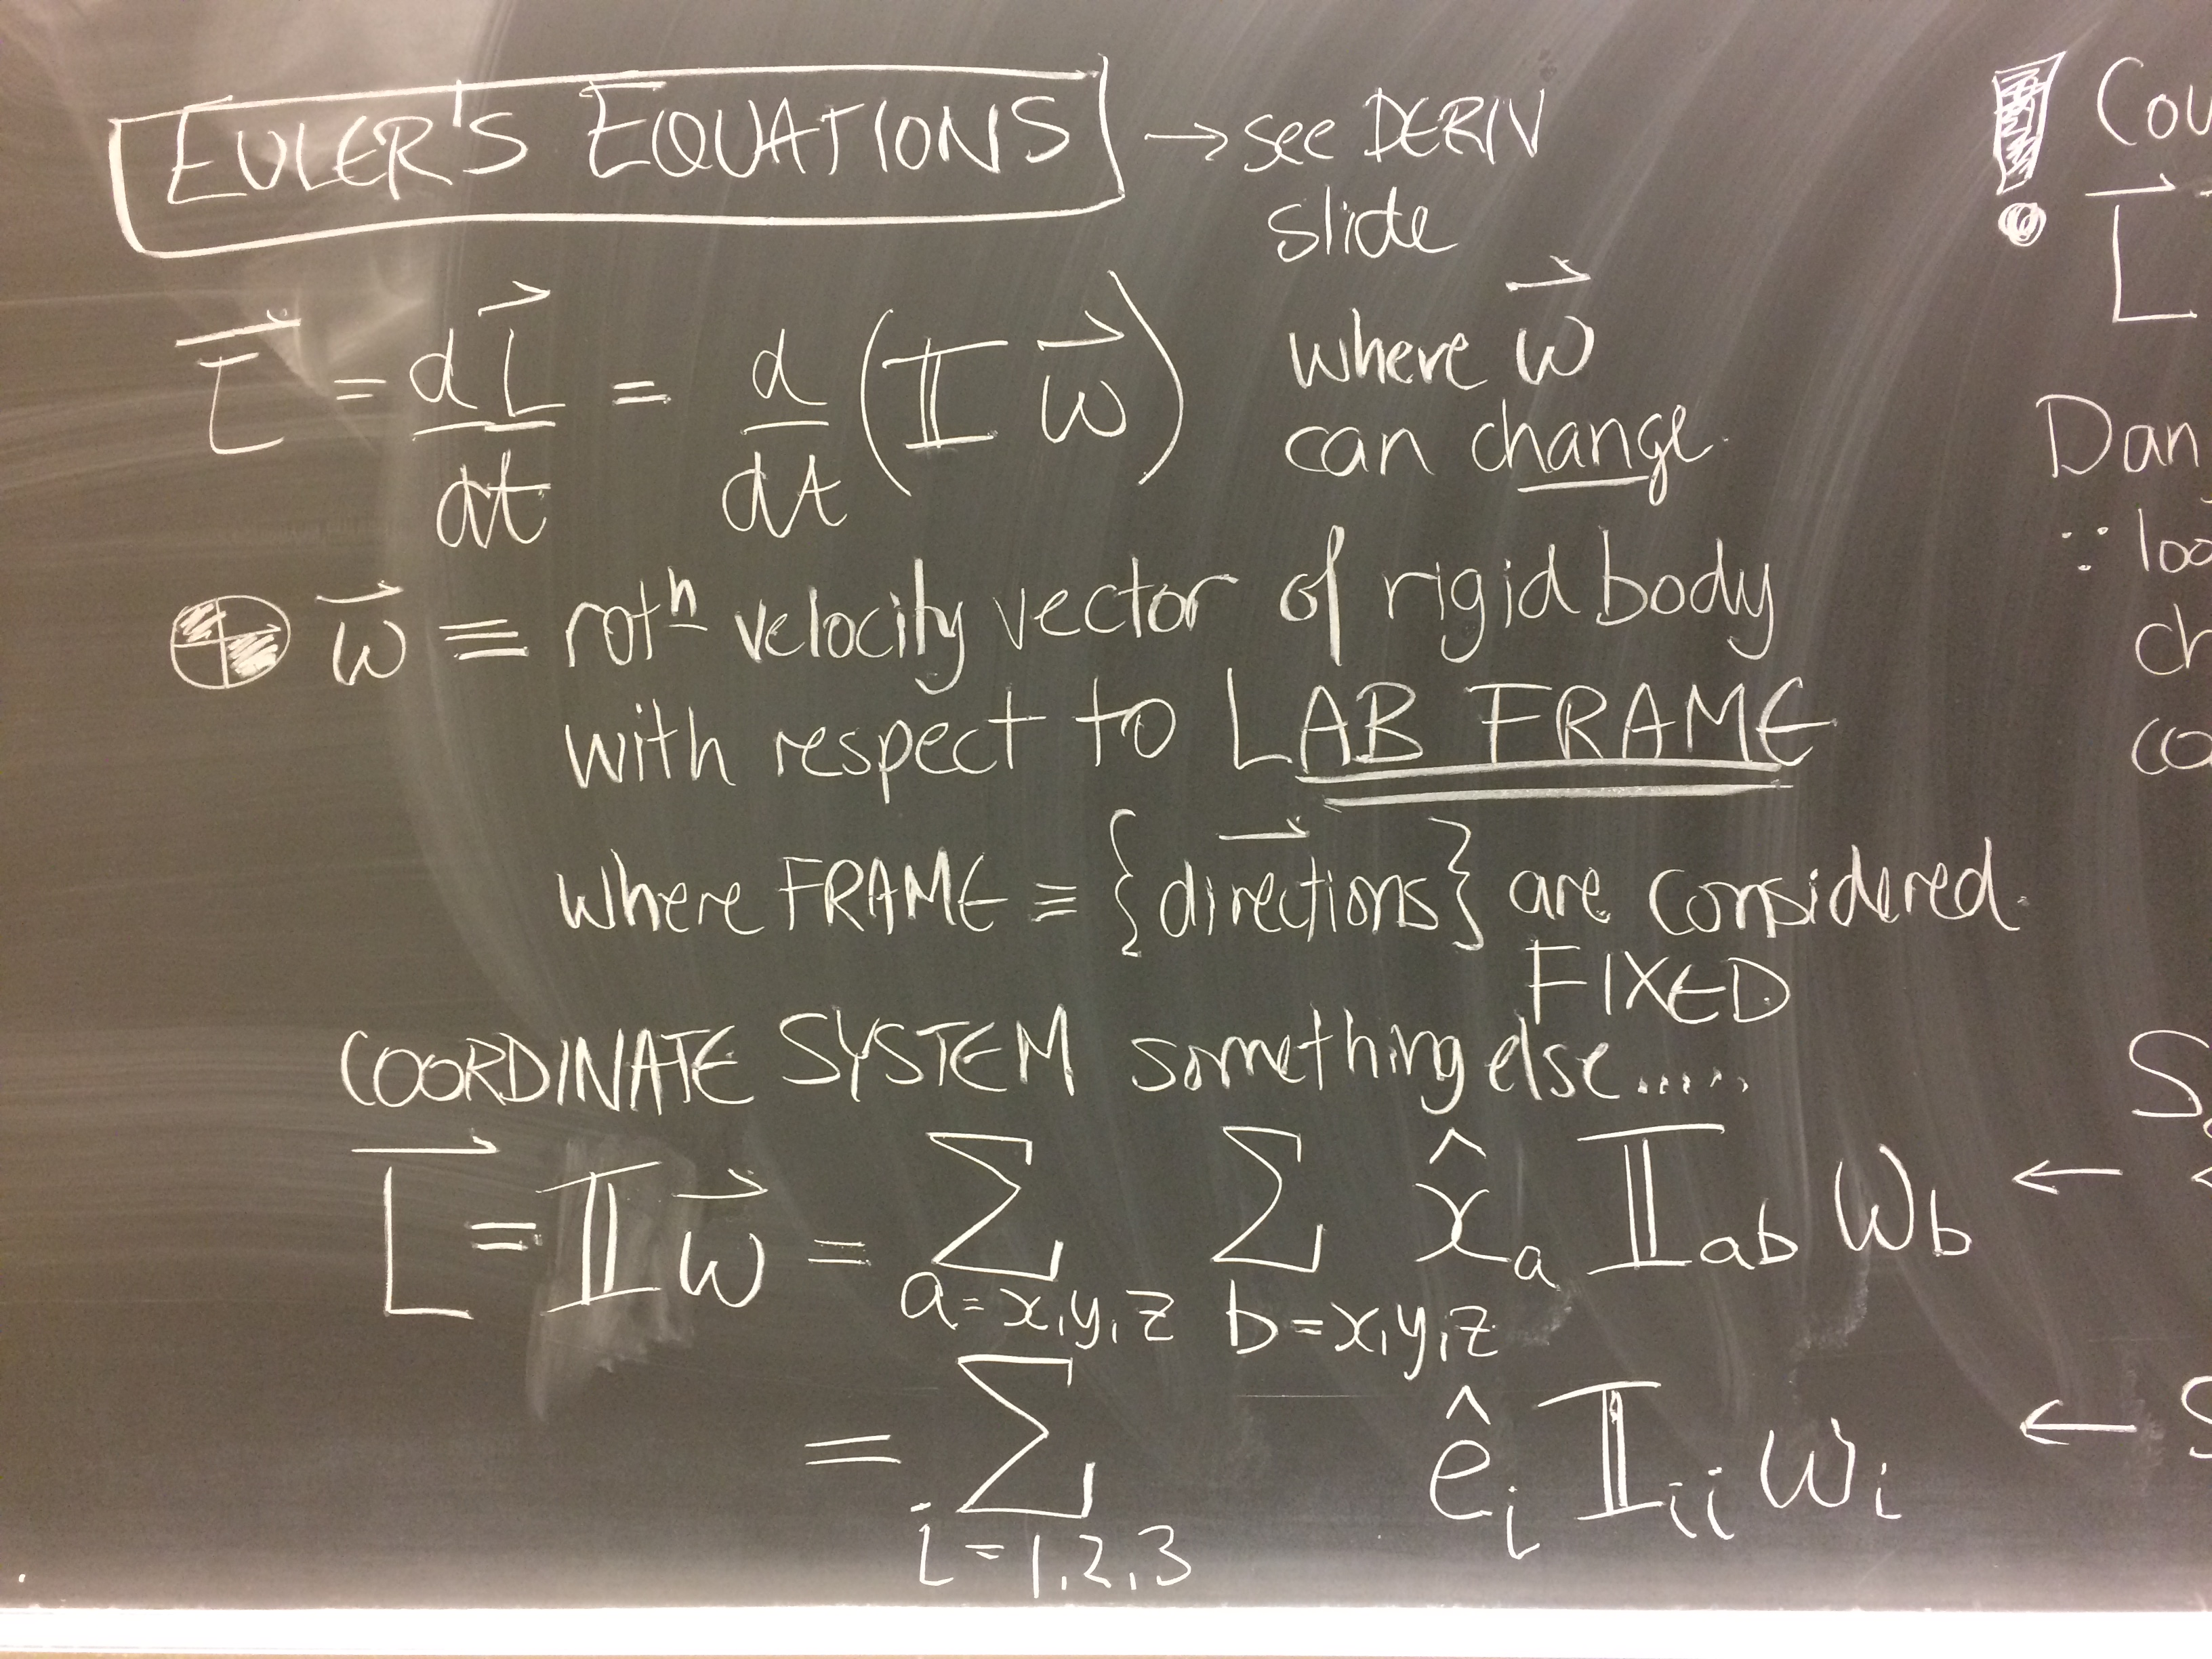 EULER'S EQUATIONS → see DERIV
slide
τ⃗ = dL⃗/dt = d/dt (𝕀 ω⃗) where ω⃗
can change.
ω⃗ ≡ rotⁿ velocity vector of rigid body
with respect to LAB FRAME
where FRAME ≡ {directions} are considered
FIXED
COORDINATE SYSTEM something else.....
L⃗ = 𝕀 ω⃗ = Σ a=x,y,z Σ b=x,y,z x̂a 𝕀ab ωb ←
= Σ i=1,2,3 êi 𝕀ii ωi ←
L⃗